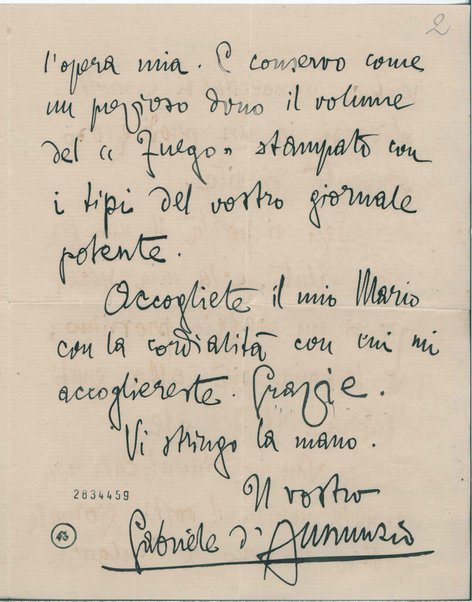 2
l'opera mia. E conservo come
un prezioso dono il volume
del « Fuego » stampato con
i tipi del vostro giornale
potente.
Accogliete il mio Mario
con la cordialità con cui mi
accogliereste. Grazie.
Vi stringo la mano.
Il vostro
2834459
Gabriele d'Annunzio